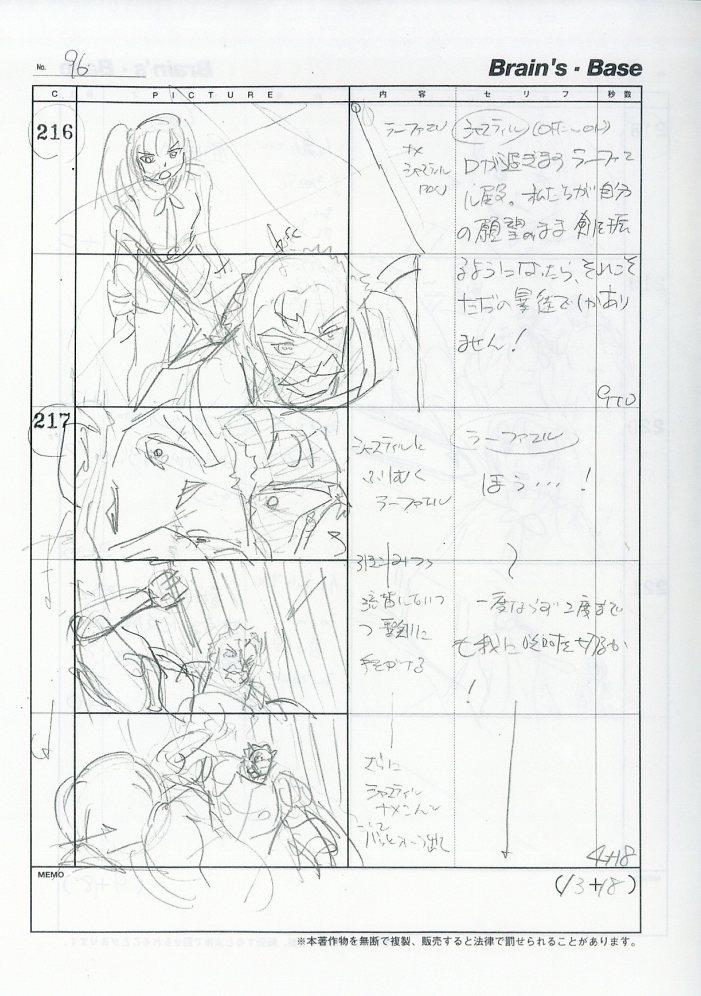 No. 96
Brain's・Base
C PICTURE 内容 セリフ 秒数
216
ラーファエル
ナメ
シャスティル
シャスティル (OFF〜ON)
口が過ぎます ラーファエ
ル殿。私たちが自分
の願望のまま剣を振
るようになったら、それこそ
ただの暴徒でしかあり
ません!
9+0
217
シャスティルに
ふりむく
ラーファエル
ラーファエル
ほう…!
一度ならず2度まで
も我に啖呵を切るか
!
さらに
シャスティル
ナメ
4+18
MEMO
(13+18)
※本著作物を無断で複製、販売すると法律で罰せられることがあります。